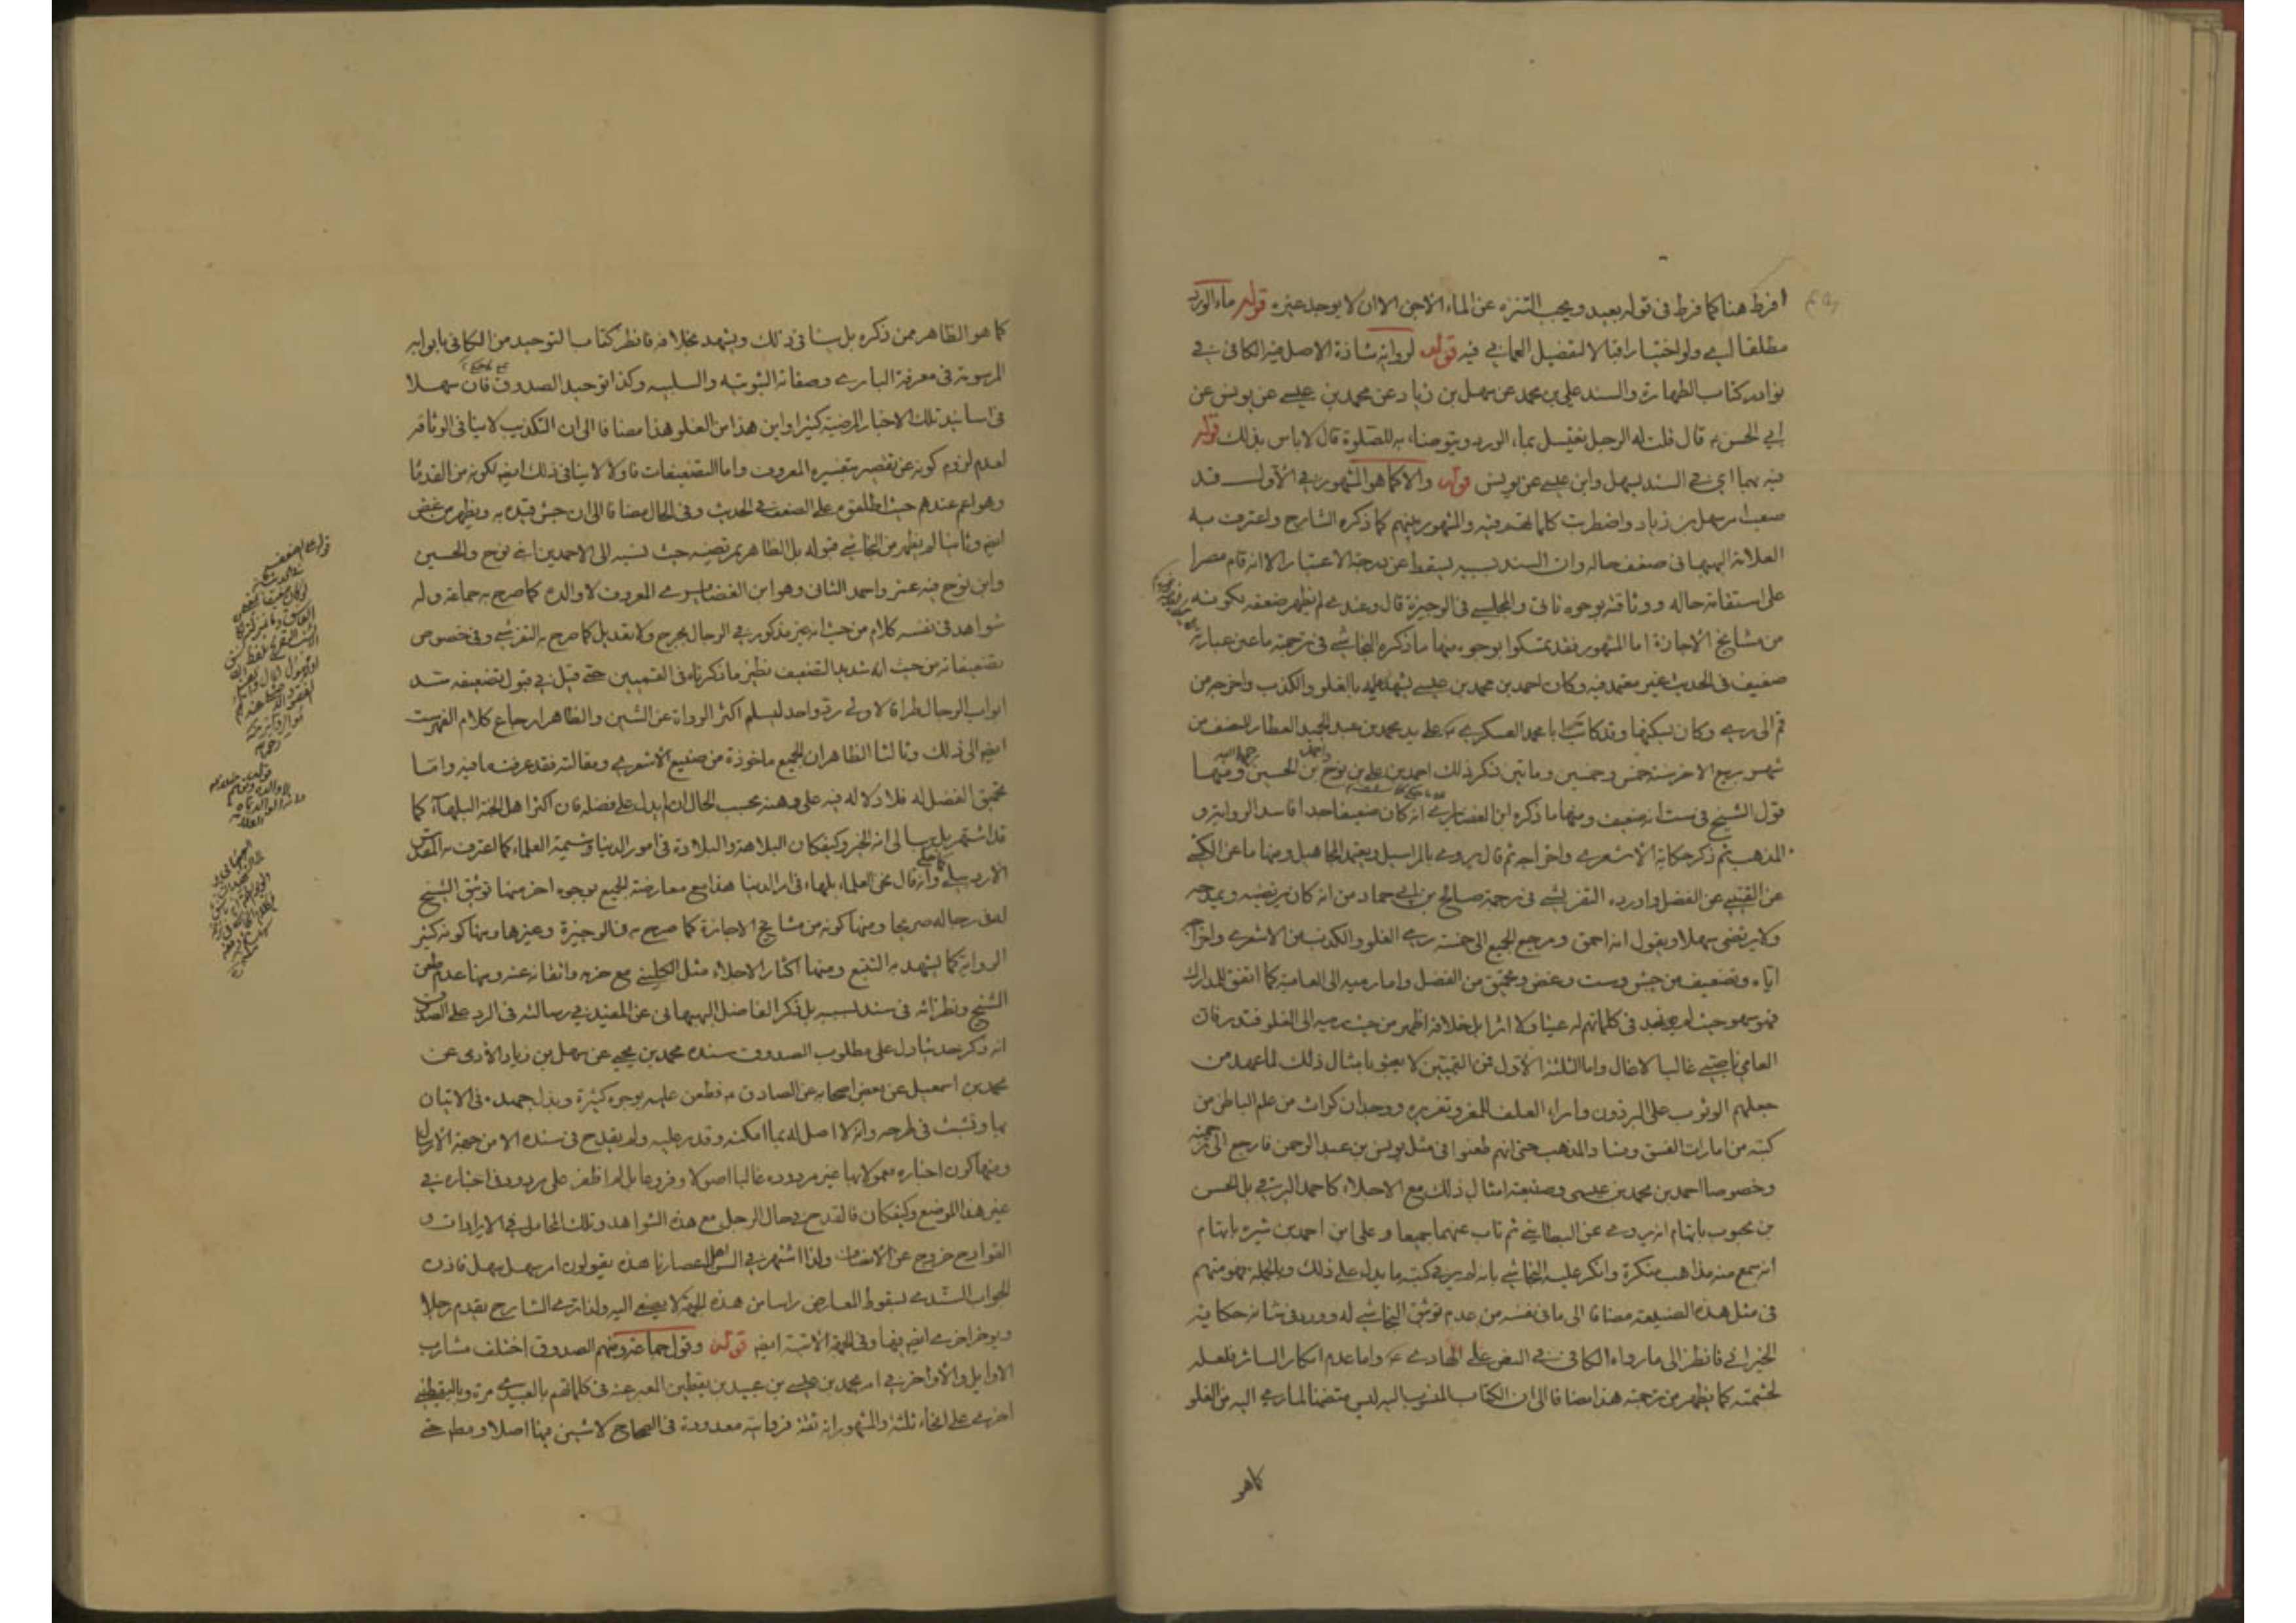 افرط هنا كما فرط فى قوله بعيد ويجب التنزه عن الماء الاجن الا ان لا يوجد غيره قوله ماء الورد
مطلقا اى ولو اختيارا قبالا لتفصيل العمانى فيه قوله لرواية شاذة الاصل فيه الكافى فى
نوادر كتاب الطهارة والسند على بن محمد عن سهل بن زياد عن محمد بن عيسى عن يونس عن
ابى الحسن ع قال قلت له الرجل يغتسل بماء الورد ويتوضاء به للصلوة قال لا باس بذلك قوله
فيه بهما اى فى السند بسهل وابن عيسى عن يونس قوله والا كما هو المشهور فى الاول فقد
صعب امر سهل بن زياد واضطربت كلماتهم فيه والمشهور بينهم كما ذكره الشارح واعترف به
العلامة البهبهانى ضعف حاله وان السند بسببه يسقط عن درجة الاعتبار الا انه قام مصرا
على استقامة حاله ووثاقته بوجوه تاتى والمجلسى فى الوجيزة قال وعندى لم يظهر ضعفه لكونه
من مشايخ الاجازة اما المشهور فقد تمسكوا بوجوه منها ما ذكره النجاشى فى ترجمته ما عين عبارته
ضعيف فى الحديث غير معتمد فيه وكان احمد بن محمد بن عيسى يشهد عليه بالغلو والكذب واخرجه من
قم الى رى وكان يسكنها وقد كاتب ابا محمد العسكرى ع على يد محمد بن عبد الحميد العطار للنصف من
شهر ربيع الاخر سنة خمس وخمسين وماتين ذكر ذلك احمد بن على بن نوح واحمد بن الحسين رحمهما الله ومنها
قول الشيخ فى ست انه ضعيف ومنها ما ذكره ابن الغضايرى انه كان ضعيفا جدا فاسد الرواية و
المذهب ثم ذكر حكاية الاشعرى واخراجه ثم قال يروى بالمراسيل ويعتمد المجاهيل ومنها ما عن الكشى
عن القتيبى عن الفضل واورده التفرشى فى ترجمة صالح بن ابى حماد من انه كان يرتضيه ويمدحه
ولا يرتضى سهلا ويقول انه احمق ومرجع الجميع الى خمسة رمى الغلو والكذب من الاشعرى واخراجه
اياه وتضعيف من جش وست وغض وتحميق من الفضل واما رميه الى العامية كما اتفق للمدارك
فهو سهو حيث لم نجد فى كلماتهم له عينا ولا اثرا بل خلافه اظهر من حيث رميه الى الغلو فتدبر فان
العامى ناصبى غالبا لا غال واما الثلثة الاول فمن القميين لا يعبؤ بامثال ذلك لما عهد من
جعلهم الوثوب على البرذون واراءة العلف للفرو تغريره ووجدان كراث من علم الباطن من
كتبه من امارات الفسق وفساد المذهب حتى انهم طعنوا فى مثل يونس بن عبد الرحمن فارجع الى ترجمته
وخصوصا احمد بن محمد بن عيسى وصنيعته امثال ذلك مع الاجلاء كاحمد البرقى بل الحسن
بن محبوب باتهام انه يروى عن البطاينى ثم تاب عنهما جميعا وعلى ابن احمد بن شيره باتهام
انه سمع منه مذاهب منكرة وانكر عليه النجاشى بانه لم ير فى كتبه ما يدل على ذلك وبالجملة فهو متهم
فى مثل هذه الصنيعة مضافا الى ما فى نفسه من عدم توثيق النجاشى له وورد فى شانه حكاية
الخيرانى فانظر الى ما رواه الكافى فى النص على الهادى ع واما عدم انكار السائر فلعله
لحشمته كما يظهر من ترجمته هذا مضافا الى ان الكتاب المنسوب اليه ليس متضمنا لما رمى اليه من الغلو
كما هو
كما هو الظاهر ممن ذكره بل ينافى ذلك ويشهد بخلافه فانظر كتاب التوحيد من الكافى بابوابه
المرسومة فى معرفة البارى وصفاته الثبوتيه والسلبيه وكذا توحيد الصدوق فان سهلا
فى اسانيد تلك الاخبار المرضية كثيرا واين هذا من الغلو هذا مضافا الى ان التكذيب لا ينافى الوثاقة
لعدم لزوم كونه عن تقصير بتفسيره المعروف واما التضعيفات فاولا لا ينافى ذلك ايضا لكونه من القدما
وهو اعم عندهم حيث اطلقوه على الضعف فى الحديث وفى الحال مضافا الى ان جش قيده به ويظهر من غض
ايضا وثانيا لم يظهر من النجاشى قبوله بل الظاهر تمريضه حيث نسبه الى الاحمدين ابنى نوح والحسين
وابن نوح فيه غمز واحمد الثانى وهو ابن الغضايرى المعروف لا والده كما صرح به جماعة وله
شواهد فى نفسه كلام من حيث انه غير مذكور فى الرجال بجرح ولا تعديل كما صرح به التفرشى وفى خصوص
تضعيفاته من حيث انه شديد التضعيف نظير ما ذكرناه فى القميين حتى قيل فى قبول تضعيفه سد
ابواب الرجال طرا ة الاولى رد واحد ليسلم اكثر الرواة عن الشين والظاهر ارجاع كلام الفهرست
ايضا الى ذلك وثالثا الظاهر ان الجميع ماخوذة من صنيع الاشعرى ومقالته فقد عرفت ما فيه واما
تحميق الفضل له فلا دلالة فيه على وهنه بحسب الحال ان لم يدل على فضله فان اكثر اهل الجنة البلهاء كما
قد اشتهر بل ربما الى انه الخبر وكيفكان البلاهة والبلادة فى امور الدنيا وشيمة العلماء كما اعترف به المقدس
الاردبيلى وانه قال نحن العلماء بلهاء فى امر الدنيا هذا مع معارضة الجميع بوجوه اخر منها توثيق الشيخ
له فى رجاله صريحا ومنها كونه من مشايخ الاجازة كما صرح به فى الوجيزة وغيرها ومنها كونه كثير
الرواية كما يشهد به التتبع ومنها اكثار الاجلاء مثل الكلينى مع حزمه واتقانه عنه ومنها عدم طعن
الشيخ ونظرائه فى سند بسببه بل ذكر الفاضل البهبهانى عن المفيد فى رسالته فى الرد على الصدوق
انه ذكر حديثا دل على مطلوب الصدوق سنده محمد بن يحيى عن سهل بن زياد الادمى عن
محمد بن اسمعيل عن بعض اصحابه عن الصادق ع فطعن عليه بوجوه كثيرة وبذل جهده فى الاتيان
بها وتشبث فى طرحه وانه لا اصل له بما امكنه وقدر عليه ولم يقدح فى سنده الا من جهة الارسال
ومنها كون اخباره معمولا بها غير مردوده غالبا اصولا وفروعا بل لم اظفر على مردود فى اخباره فى
غير هذا الموضع وكيفكان فالقدح فى حال الرجل مع هذه الشواهد وتلك المحامل فى الايرادات و
القوادح خروج عن الانصاف ولذا اشتهر فى السن اهل اعصارنا هذه يقولون امر سهل سهل فاذن
الجواب السندى بسقوط المعارض راسا من هذه الجهة لا يصغى اليه ولذا ترى الشارح يقدم رجلا
ويوخر اخرى ايضا فيها وفى الجهة الاتية ايضا قوله وقول جماعة ومنهم الصدوق اختلف مشارب
الاوايل والاواخر فى امر محمد بن عيسى بن عبيد بن يقطين المعبر عنه فى كلماتهم بالعبيدى مرة وباليقطينى
اخرى على انحاء ثلثة والمشهور انه ثقة فرواياته معدودة فى الصحاح لا شين فيها اصلا ومطرح